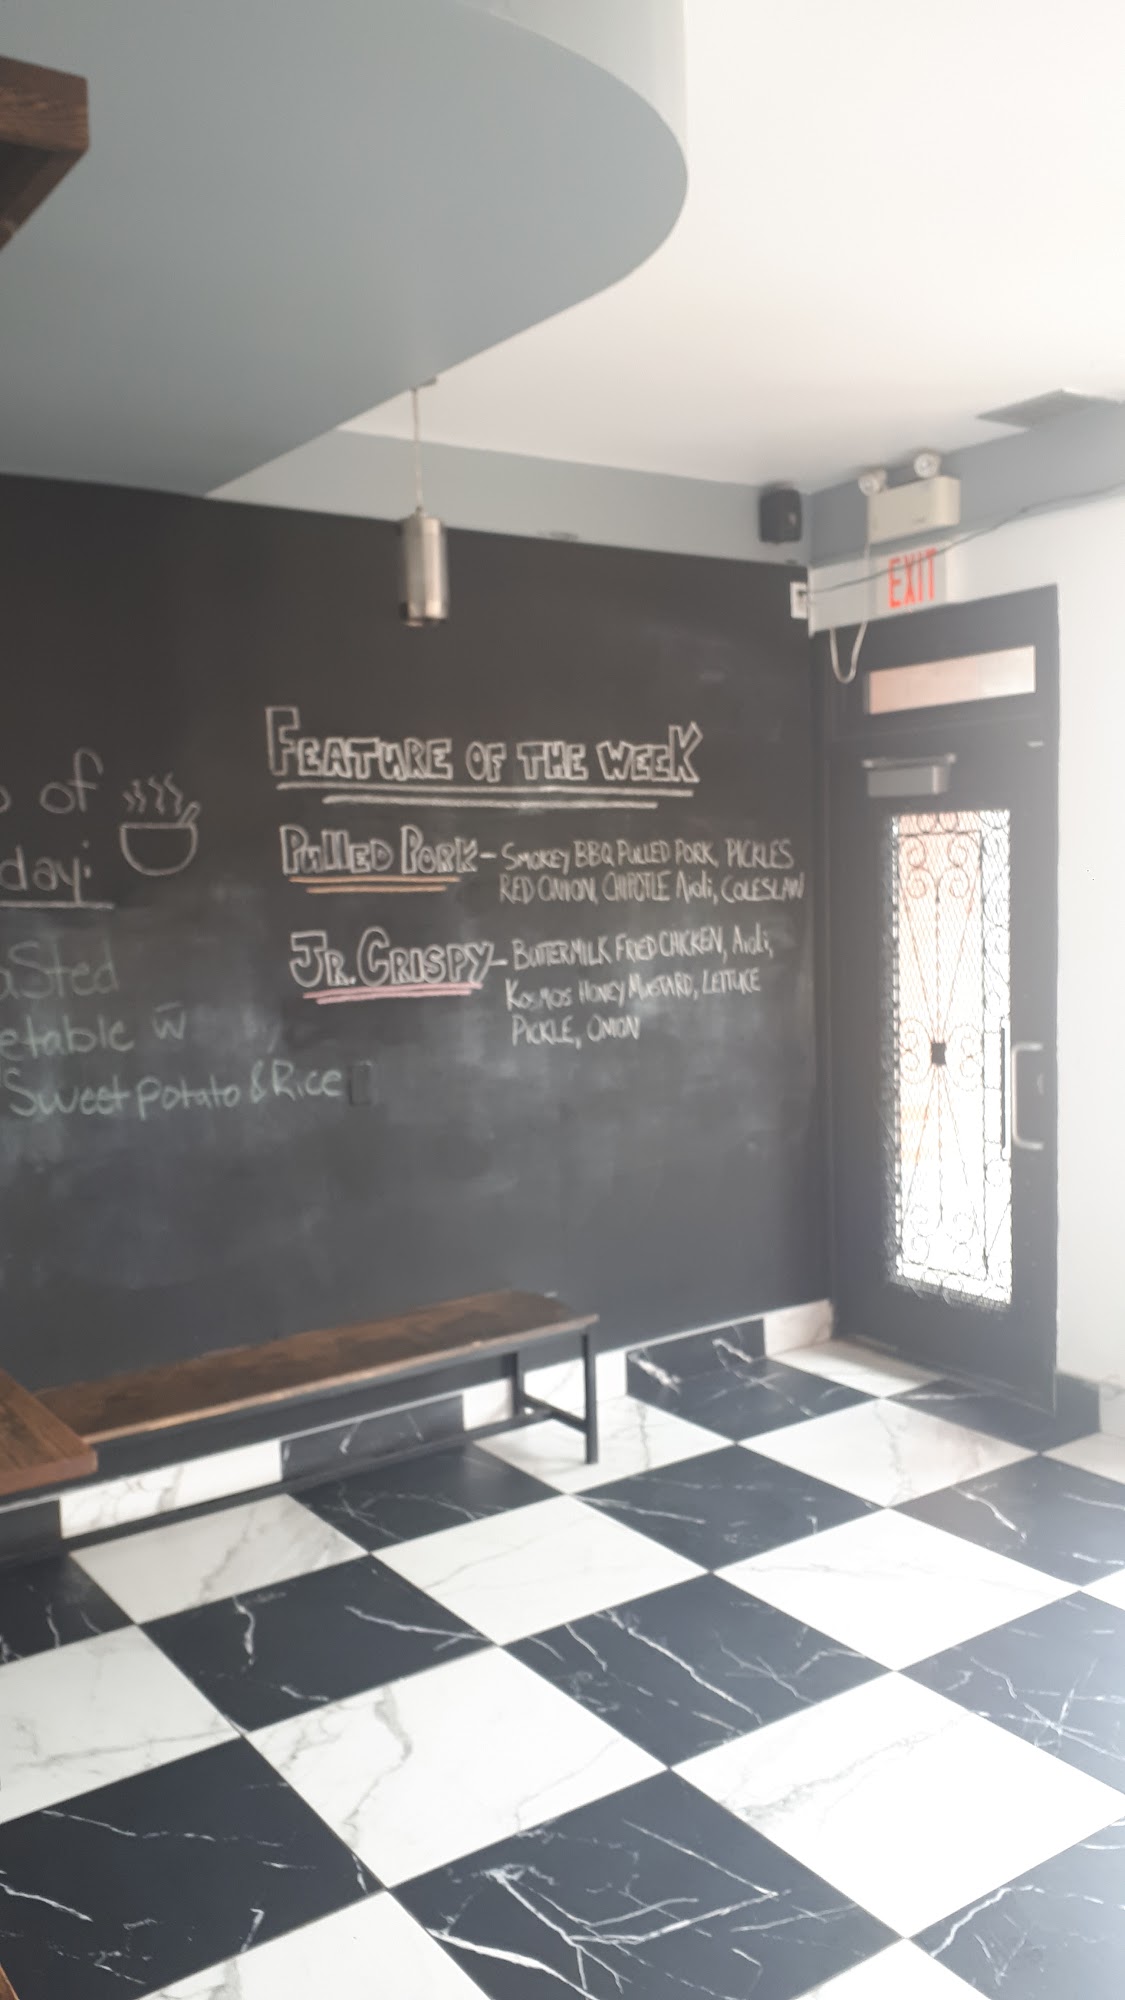 of
day:
Sweet potato & Rice
FEATURE OF THE WEEK
PULLED PORK - SMOKEY BBQ PULLED PORK, PICKLES
RED ONION, CHIPOTLE Aioli, COLESLAW
JR. CRISPY - BUTTERMILK FRIED CHICKEN, Aioli,
KOSMOS HONEY MUSTARD, LETTUCE
PICKLE, ONION
EXIT